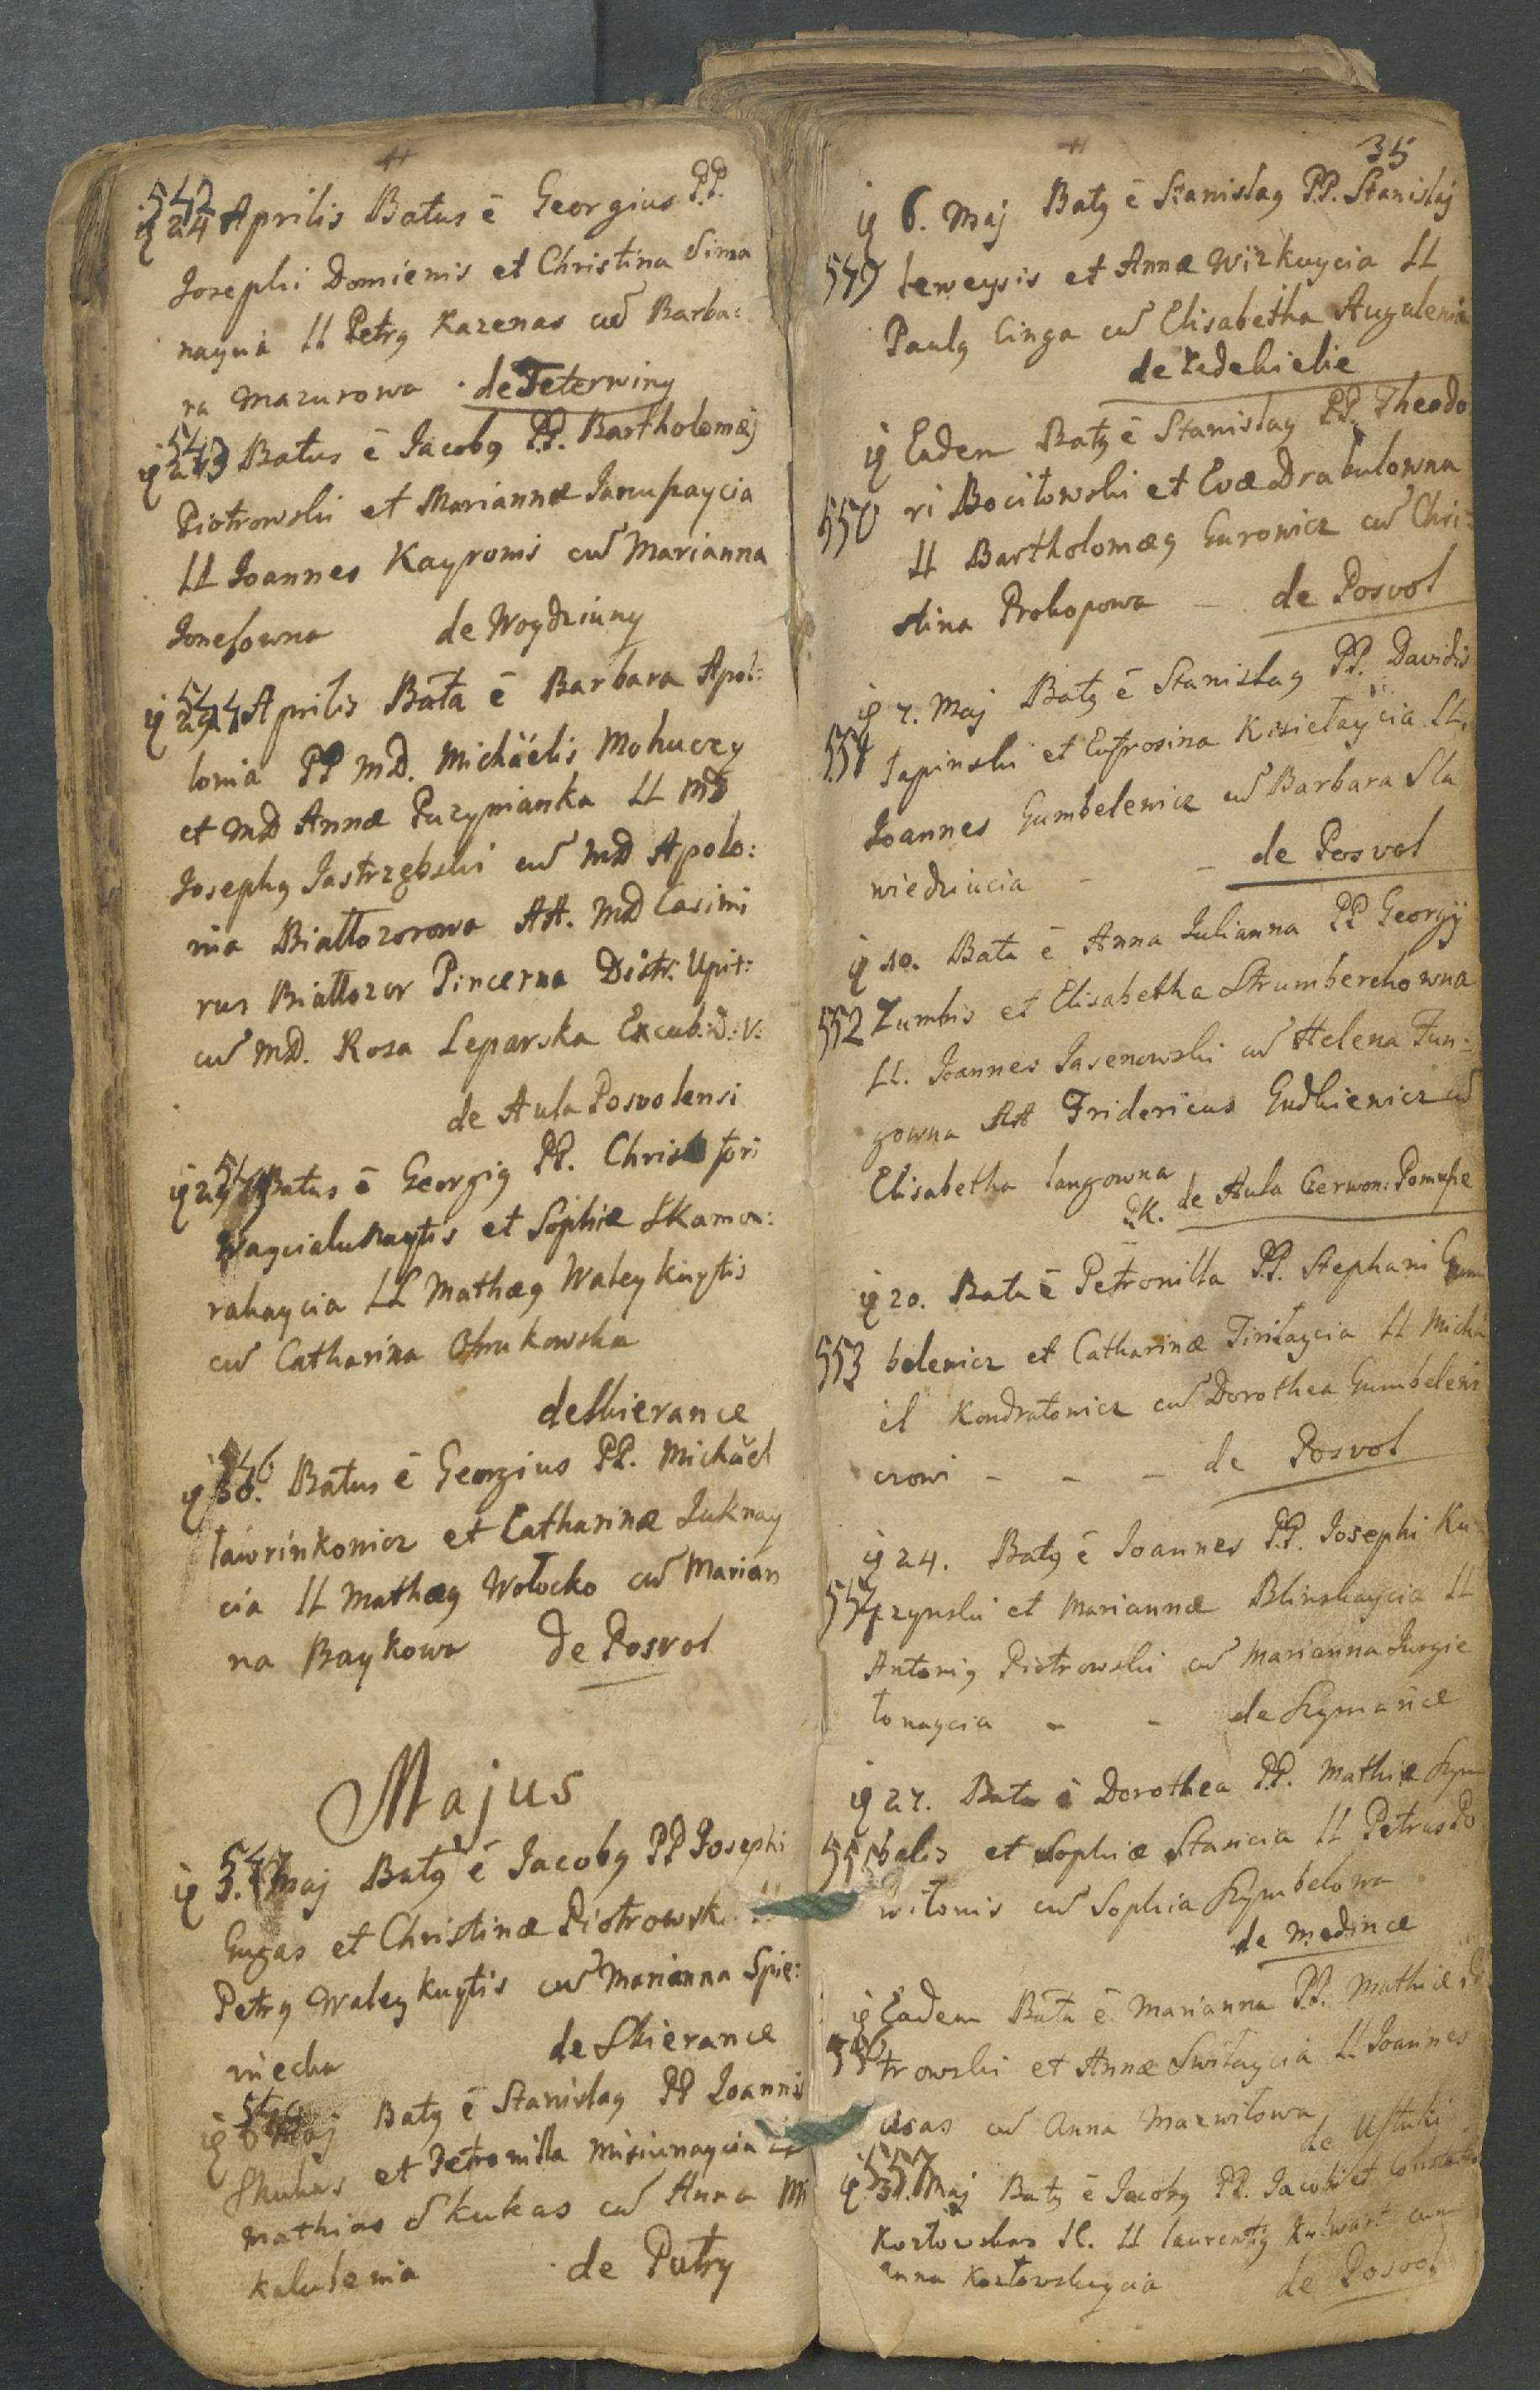 542
24 Aprilis Batus ē Georgius PP.
Josephi Domienis et Christina Sima
naycia LL Petrg Kazenas cū Barba:
ra Mazurowa de Teterwiny
543
Batus ē Jacobg PP. Bartholomæj
Piotrowski et Mariannæ Janupaycia
LL Joannes Kayronis cū Marianna
Jonesowna de Woydziuny
544
Aprilis Bata ē Barbara Apol:
lonia PP MD. Michäelis Mohuczy
et MD Annæ Puzynianka LL MD
Josephg Jastrzębski cū MD Apolo:
nia Białłozorowa AA. MD Casimi
rus Białłozor Pincerna Distr: Upit:
cū MD. Rosa Leparska Excub: D: V:
de Aula Posvolensi
Batus ē Georgig PP. Christofori
et Sophiæ Skama:
rakaycia LL Mathæg Waleykuytis
cū Catharina
de Skierańce
546
30. Batus ē Georgius PP. Michäel
Ławrinkonicz et Catharinæ Juknay
cia LL Mathæg Wołocko cū Marian
na Baykowa de Posvol
Majus
547
3. Maj Batg ē Jacobg PP Josephi
Gugas et Christinæ Piotrowsk
Petrg Waleykuytis cū Marianna Spie:
wiecka de Skierańce
Maj Batg ē Stanislag PP Joannis
Skukas et Petronilla Misiunaycia LL
Mathias Skukas cū Anna Mi
kalulenia de Putry
35
6. Maj Batg ē Stanislag PP. Stanislaj
549 Leweysis et Annæ Wizkuycia LL
Paulg Cinga cū Elisabetha Augulenia
de Zedekielie
Eadem Batg ē Stanislag PP. Theodo
550 ri Bocitowski et Evæ Drabulowna
LL Bartholomæg Gurowicz cū Chri:
stina Prokopowa - de Posvol
7. Maj Batg ē Stanislag PP. Davidis
551 Łapinski et Eufrosina Kisielaycia LL.
Joannes Gumbelewicz cū Barbara Sla
wiedziucia - - de Posvol
10. Bata ē Anna Julianna PP Georgÿ
552 Zumbis et Elisabetha Strumberchowna
LL. Joannes Jasenowski cū Helena Fun:
gowna AA Fridericus Gudkiewicz cū
Elisabetha Langowna
de Aula Czerwon: Pomusze
20. Bata ē Petronilla PP. Stephani Gum
553 belewicz et Catharinæ Tiriłaycia LL Micha
el Kondratowicz cū Dorothea Gumbelewi
czowi - - - de Posvol
24. Batg ē Joannes PP. Josephi Ku
554 czynski et Mariannæ Blinskaycia LL
Antonig Piotrowski cū Marianna Jurgie
łonaycia - - de Szymańce
27. Bata ē Dorothea PP. Mathiæ Szym
555 belis et Sophiæ Stancia LL Petrus Po
wiłonis cū Sophia Szymbelowa
de Medince
Eadem Bata ē Marianna PP. Mathiæ Pi
556 trowski et Annæ Switaycia LL Joannes
Usas cū Anna Mazwiłowa
de Ustuki
557
31. Maj Batg ē Jacobg PP. Jacobi et
Kozłowskas LL Laurentÿ Kulwart cum
Anna Kozłowskaycia de Posvol